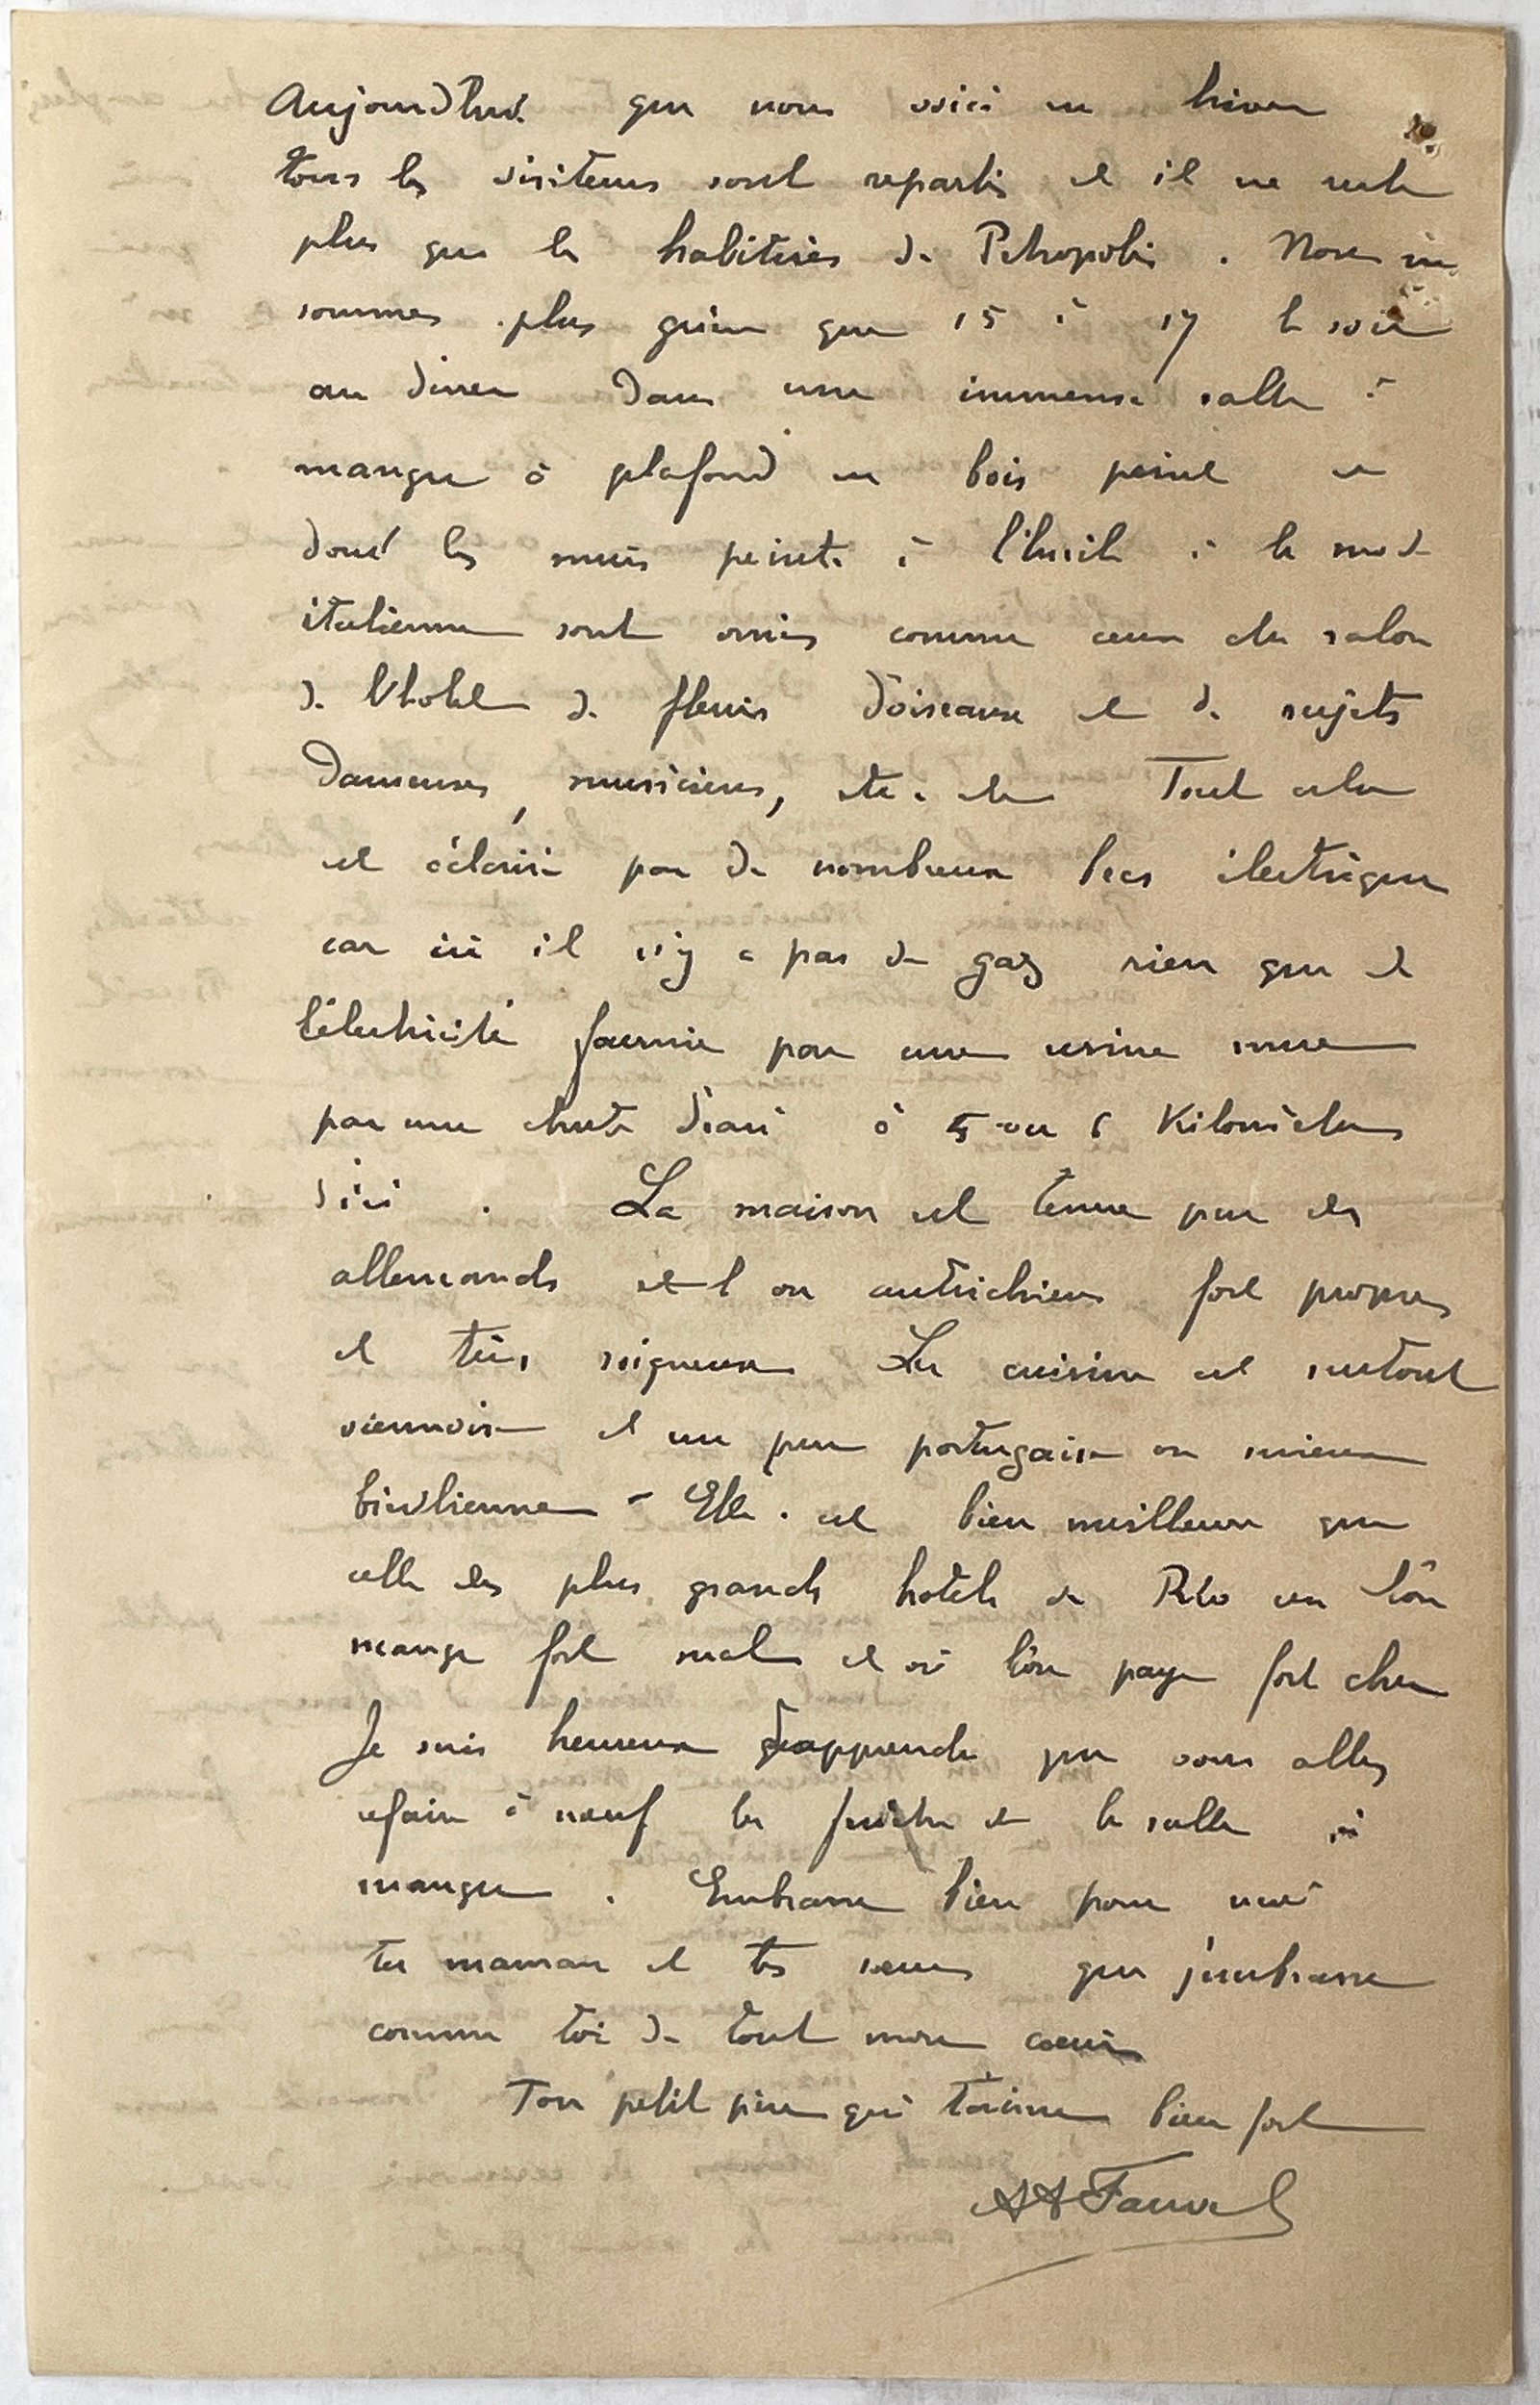 Aujourd'hui que nous voici en hiver
tous les visiteurs sont repartis et il ne reste
plus que les habitués de Petropolis. Nous ne
sommes plus guère que 15 à 17 le soir
au diner dans une immense salle à
manger à plafond en bois peint et
dont les murs peints à l'huile à la mode
italienne sont ornés comme ceux du salon
de l'hotel de fleurs d'oiseaux et de sujets
danseuses, musiciens, etc. etc Tout cela
est éclairé par de nombreux becs électriques
car ici il n'y a pas de gaz rien que de
l'électricité fournie par une usine mue
par une chute d'eau à 5 ou 6 Kilomètres
d'ici. La maison est tenue par des
allemands et ou autrichiens fort propres
et très soigneux La cuisine est surtout
viennoise et un peu portugaise ou mieux
brésilienne - Elle est bien meilleure que
celle des plus grands hotels de Rio ou l'on
mange fort mal et où l'on paye fort cher
Je suis heureux d'apprendre que vous allez
refaire à neuf les de la salle à
manger. Embrasse bien pour moi
ta maman et tes soeurs que j'embrasse
comme toi de tout mon coeur
Ton petit père qui t'aime bien fort
AA Fauvel